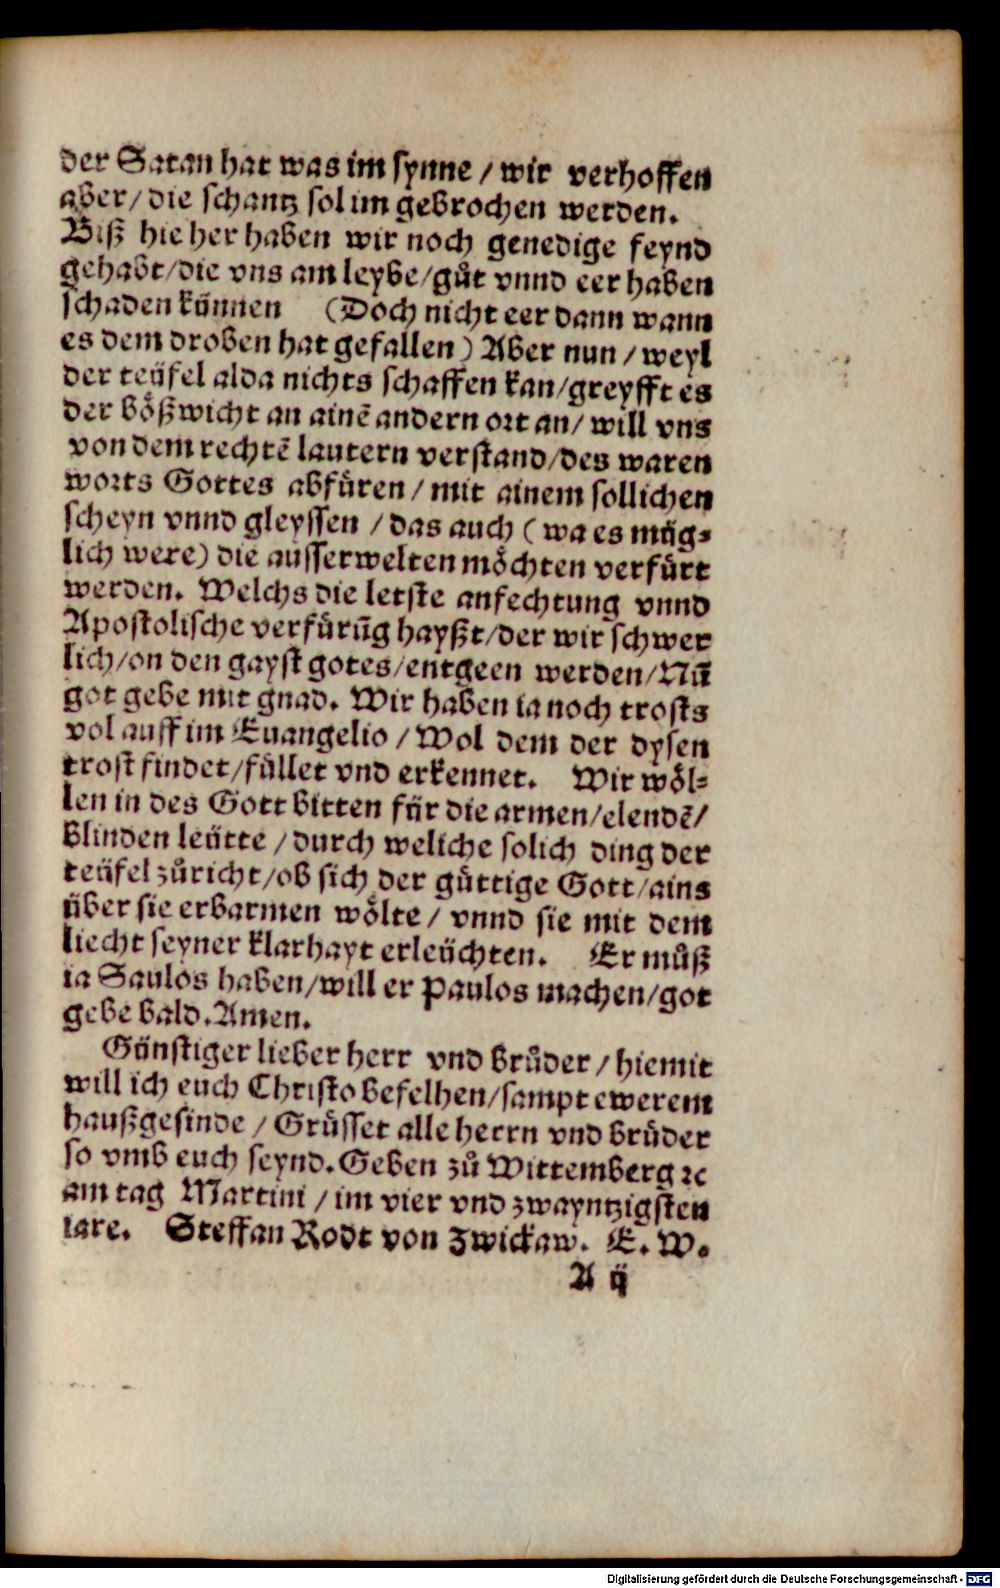 der Satan hat was im synne / wir verhoffen
aber / die schantz sol im gebrochen werden.
Biß hie her haben wir noch genedige feynd
gehabt / die vns am leybe / gůt vnnd eer haben
schaden künnen (Doch nicht eer dann wann
es dem droben hat gefallen) Aber nun / weyl
der teüfel alda nichts schaffen kan / greyfft es
der bößwicht an ainē andern ort an / will vns
von dem rechtē lautern verstand / des waren
worts Gottes abfüren / mit ainem sollichen
scheyn vnnd gleyssen / das auch (wa es müg⸗
lich were) die ausserwelten möchten verfürt
werden. Welchs die letste anfechtung vnnd
Apostolische verfürūg hayßt / der wir schwer
lich / on den gayst gotes / entgeen werden / Nū
got gebe mit gnad. Wir haben ia noch trosts
vol auff im Euangelio / Wol dem der dysen
trost findet / fället vnd erkennet. Wir wöl⸗
len in des Gott bitten für die armen / elendē /
blinden leütte / durch weliche solich ding der
teüfel zůricht / ob sich der güttige Gott / ains
über sie erbarmen wölte / vnnd sie mit dem
liecht seyner klarhayt erleüchten. Er můß
ia Saulos haben / will er Paulos machen / got
gebe bald. Amen.
Günstiger lieber herr vnd brůder / hiemit
will ich euch Christo befelhen / sampt ewerem
haußgesinde / Grüsset alle herrn vnd brüder
so vmb euch seynd. Geben zů Wittemberg ꝛc
am tag Martini / im vier vnd zwayntzigsten
iare. Steffan Rodt von Zwickaw. E. W.
A ij
Digitalisierung gefördert durch die Deutsche Forschungsgemeinschaft - DFG